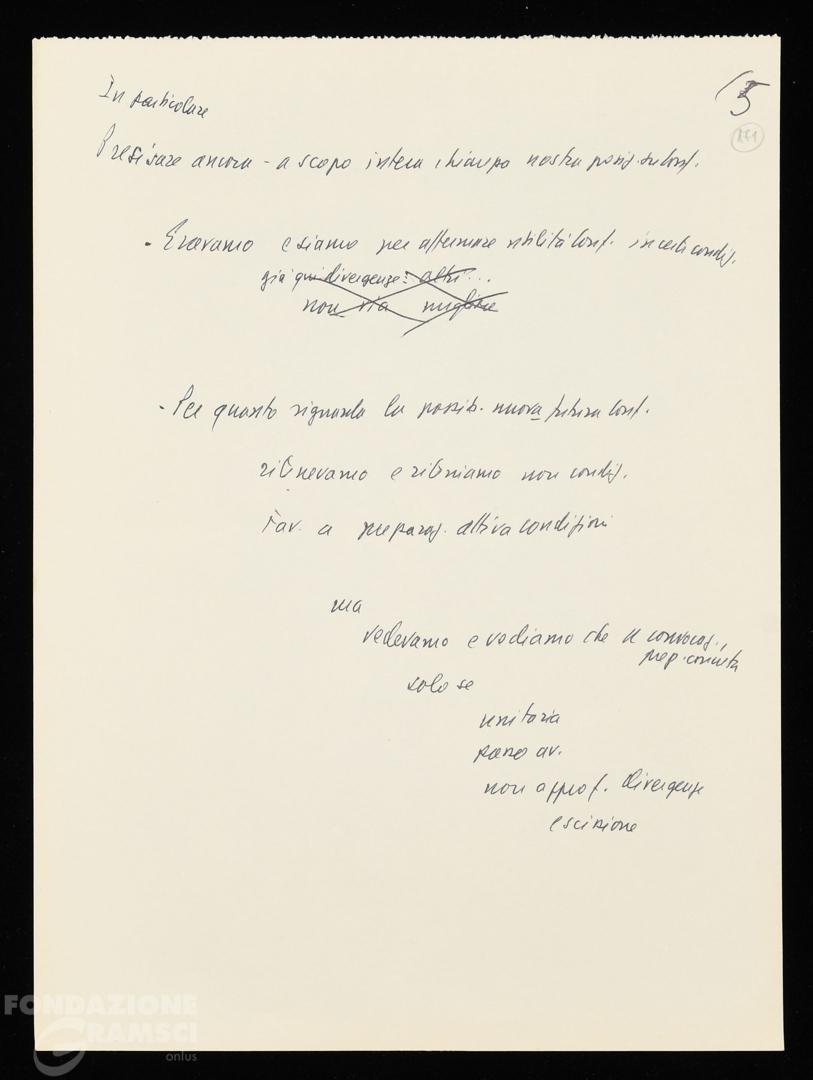 In particolare
5
Precisare ancora - a scopo intera nostra posiz. su Conf.
- Eravamo e siamo per affermare utilità Conf. in certe condiz.
già qui divergenze: altri...
non sia migliore
- Per quanto riguarda la possib. nuova futura Conf.
ritenevamo e riteniamo non condiz.
Fav. a preparaz. attiva condizioni
ma
vedevamo e vediamo che convocaz.,
prep. concreta
solo se
unitaria
passo av.
non approf. divergenze
scissione
FONDAZIONE
GRAMSCI
onlus